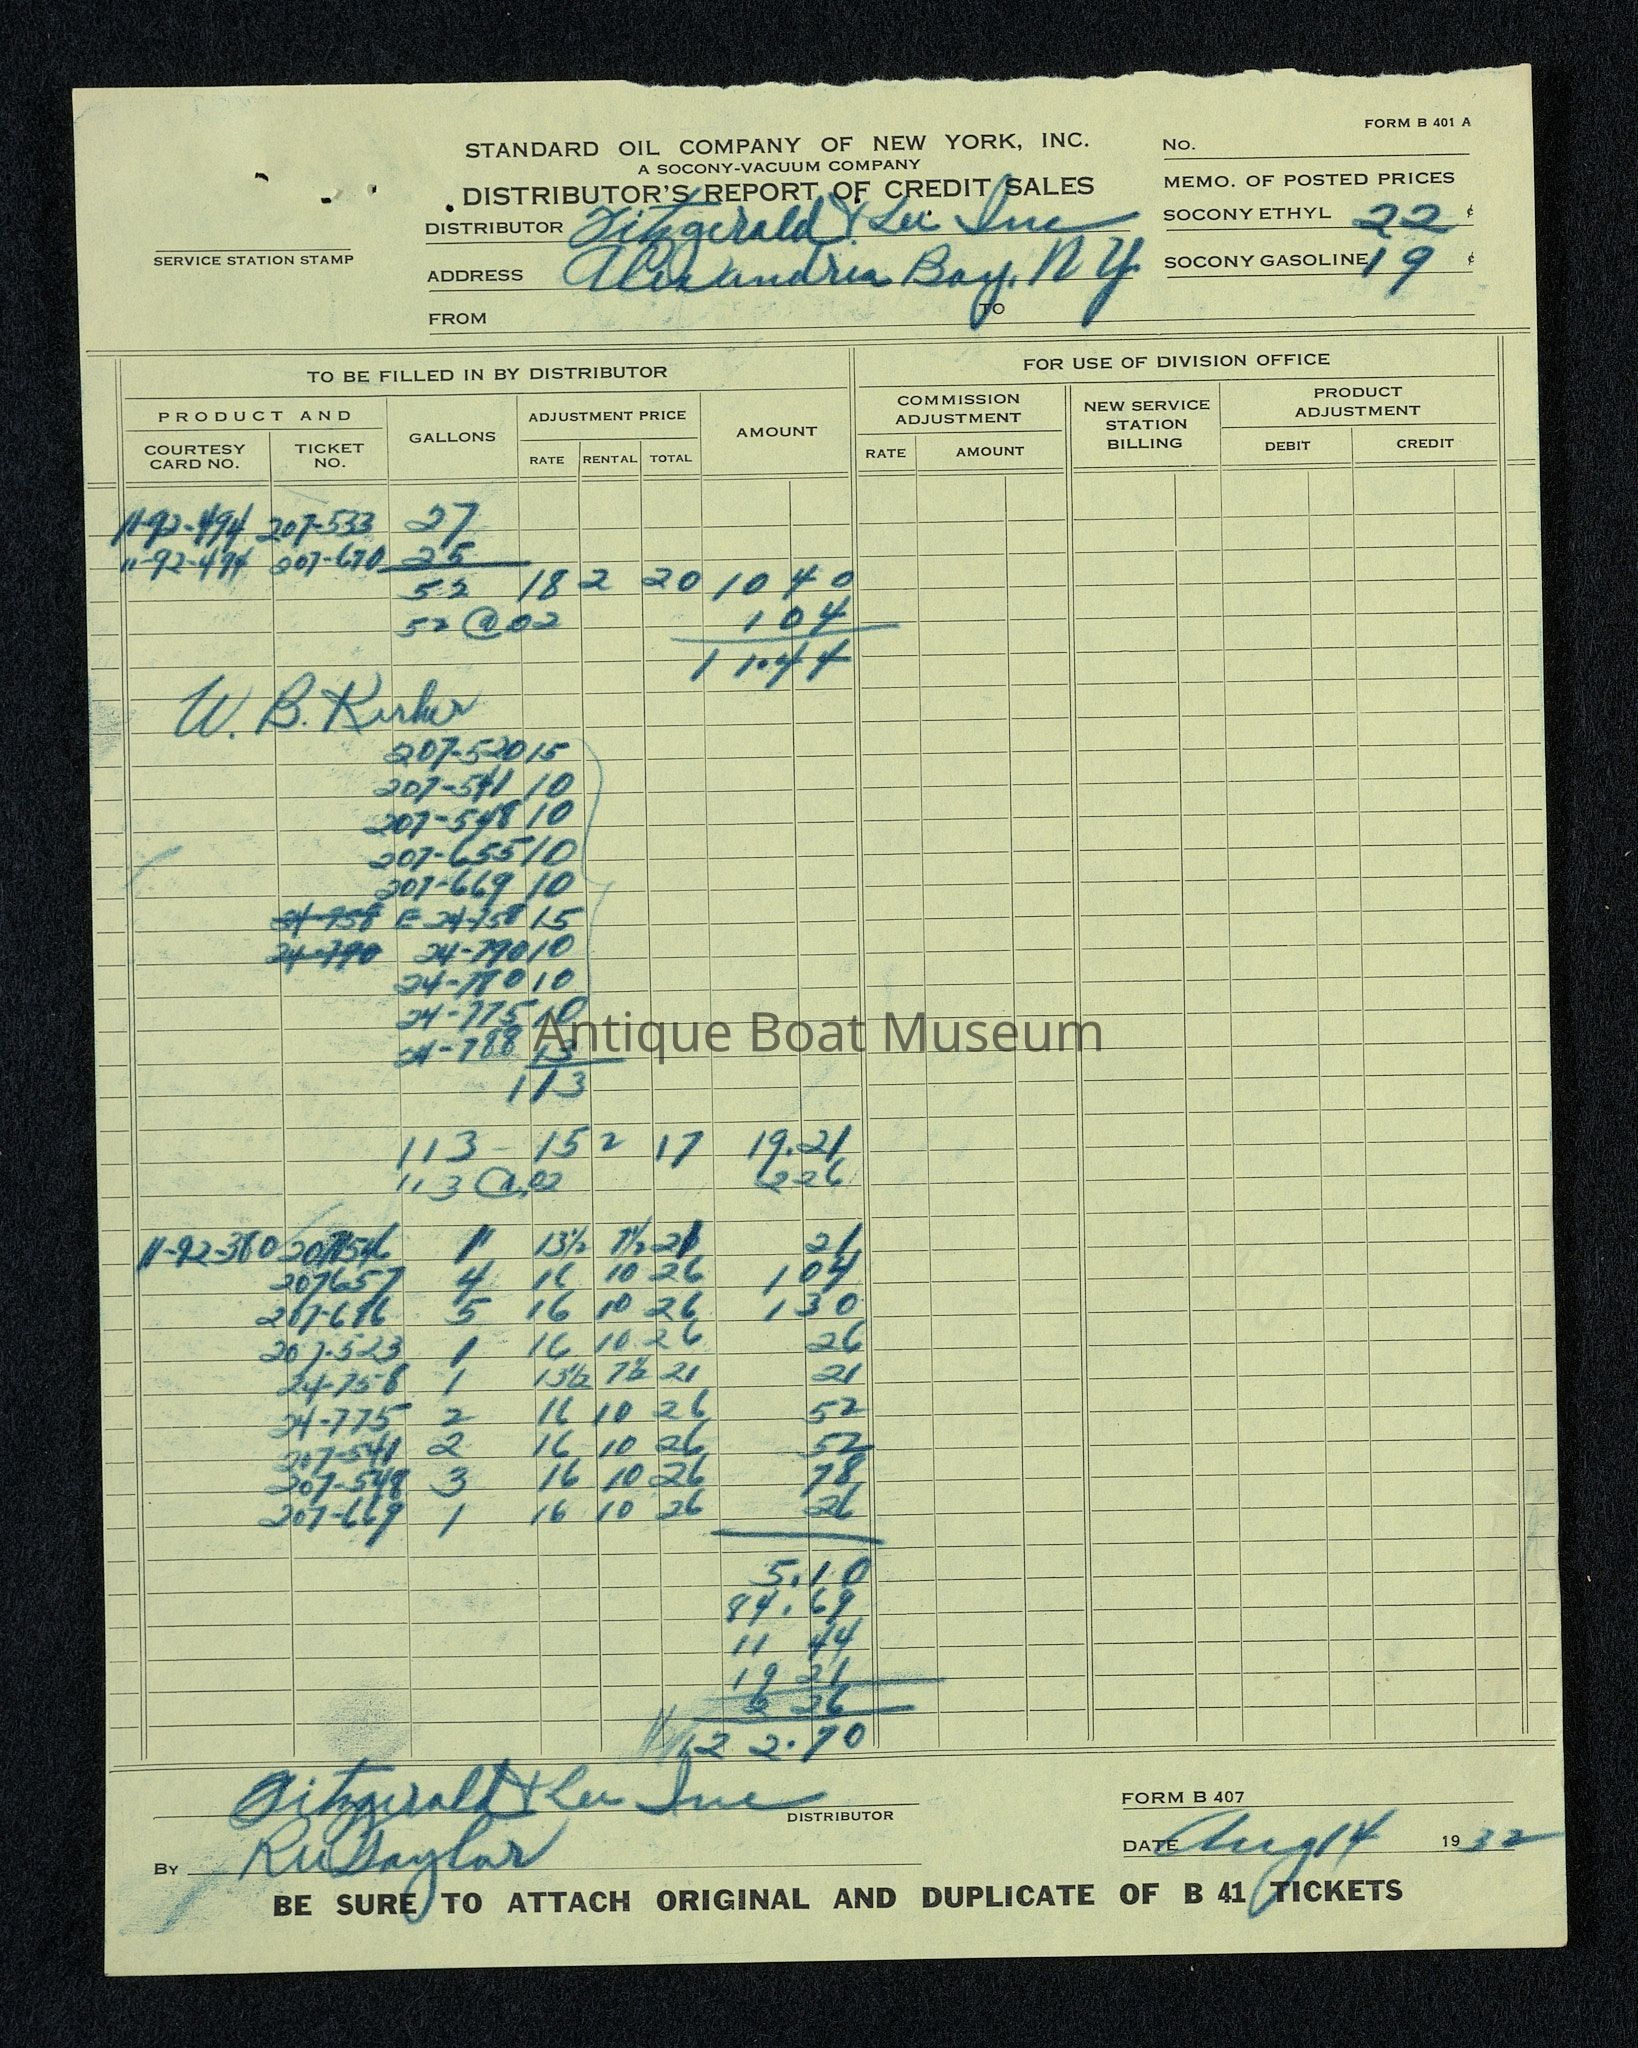 FORM B 401 A
STANDARD OIL COMPANY OF NEW YORK, INC.
A SOCONY-VACUUM COMPANY
DISTRIBUTOR'S REPORT OF CREDIT SALES
No.
MEMO. OF POSTED PRICES
SOCONY ETHYL 22 ¢
SOCONY GASOLINE 19 ¢
SERVICE STATION STAMP
DISTRIBUTOR Fitzgerald & Lee Inc
ADDRESS Alexandria Bay, N Y.
FROM TO
TO BE FILLED IN BY DISTRIBUTOR
FOR USE OF DIVISION OFFICE
PRODUCT AND
COURTESY CARD NO.
TICKET NO.
GALLONS
ADJUSTMENT PRICE
RATE RENTAL TOTAL
AMOUNT
COMMISSION ADJUSTMENT
RATE AMOUNT
NEW SERVICE STATION BILLING
PRODUCT ADJUSTMENT
DEBIT CREDIT
11-92-494 207-533 27
11-92-494 207-670 25
52 18 2 20 10 40
52 @ 02 1 04
11.44
W. B.
207-520 15
207-541 10
207-548 10
207-655 10
207-669 10
24-758 E 24-758 15
24-790 24-790 10
24-780 10
24-775 10
24-788 13
113
113 - 15 2 17 19.21
113 @ .02 2 26
11-92-380 207546 1 13½ 7½ 21 21
207657 4 16 10 26 1 04
207-676 5 16 10 26 1 30
207-523 1 16 10 26 26
24-758 1 13½ 7½ 21 21
24-775 2 16 10 26 52
207-541 2 16 10 26 52
207-548 3 16 10 26 78
207-669 1 16 10 26 26
5.10
84.69
11 44
19 21
2 26
122.70
Antique Boat Museum
Fitzgerald & Lee Inc
DISTRIBUTOR
By R W Taylor
FORM B 407
DATE Aug 14 1932
BE SURE TO ATTACH ORIGINAL AND DUPLICATE OF B 41 TICKETS